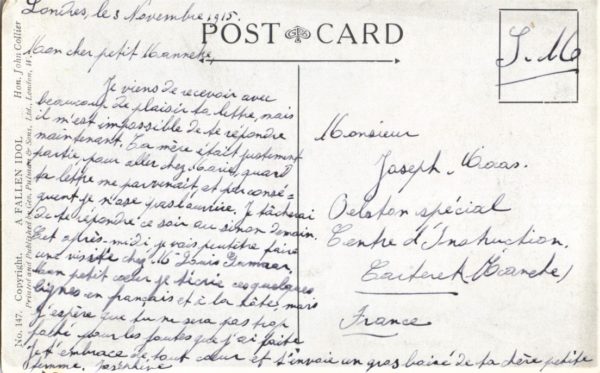 Londres, le 3 Novembre 1915.
POST CARD
Mon cher petit Manneke,
Je viens de recevoir avec
beaucoup de plaisir ta lettre, mais
il m'est impossible de te répondre
maintenant. Ta mère était justement
partie, pour aller chez Marie, quand
ta lettre me parvenait et par consé-
quent je n'ose pas l'ouvrire. Je tâcherai
de te répondre ce soir ou sinon demain.
Cet après-midi je vais peutêtre faire
une visite chez Mr Louis
Mon petit cœur je t'écrie ces quelques
lignes en français et à la hâte, mais
j'espère que tu ne sera pas trop
faché pour les fautes que j'ai faite
Je t'embrace de tout cœur et t'envoie un gros baisé de ta chère petite
femme, Joséphine
S. M.
Monsieur
Joseph Maas.
Peloton spécial
Centre d'Instruction.
Carteret (Manche)
France
No. 147. Copyright. A FALLEN IDOL Hon. John Collier
Printed and Published by Geo. Pulman & Sons, Ltd., London, W.